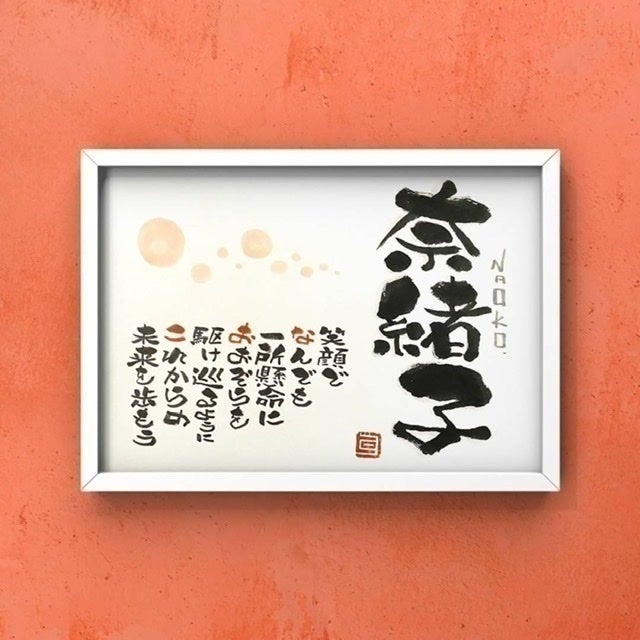 奈緒子
NAOKO.
笑顔で
なんでも
一所懸命に
おおぞらを
駆け巡るように
これからの
未来を歩もう